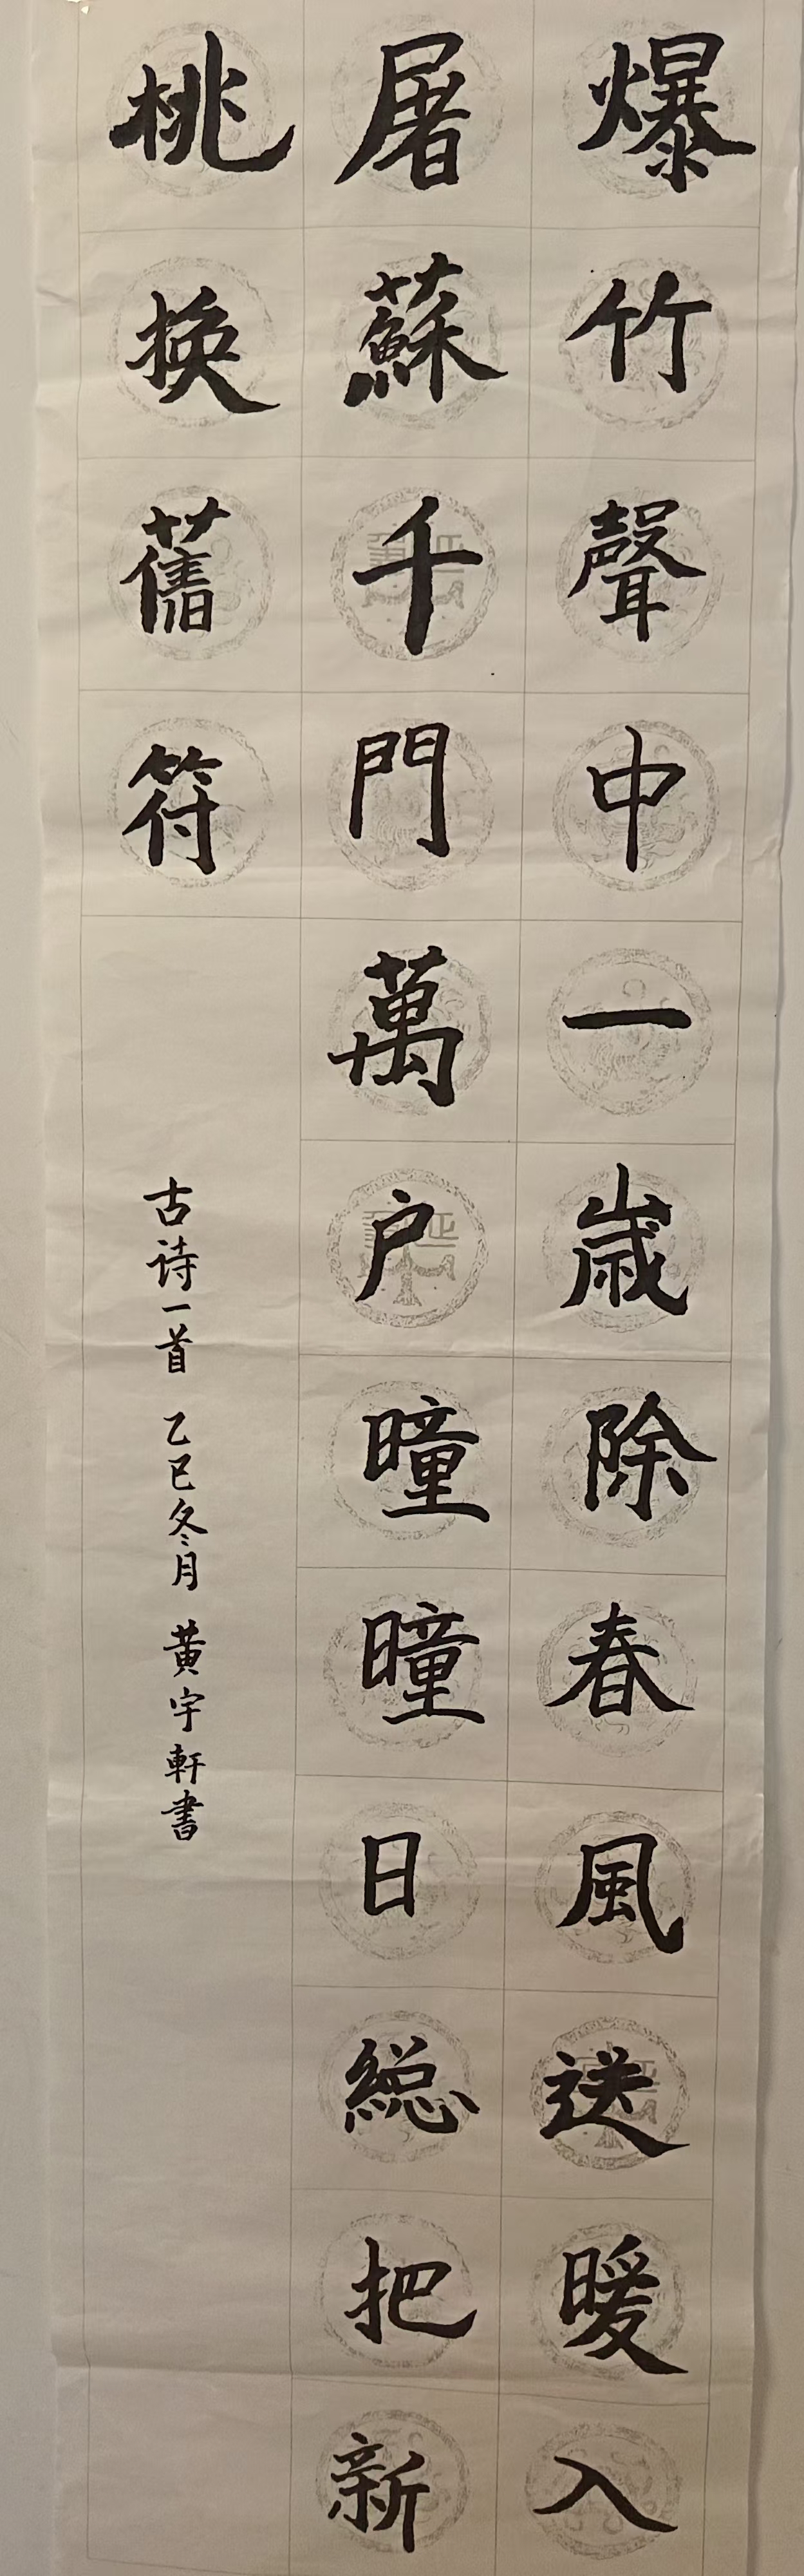 爆竹聲中一歲除春風送暖入
屠蘇千門萬户曈曈日總把新
桃換舊符
古诗一首 乙巳冬月 黄宇軒書